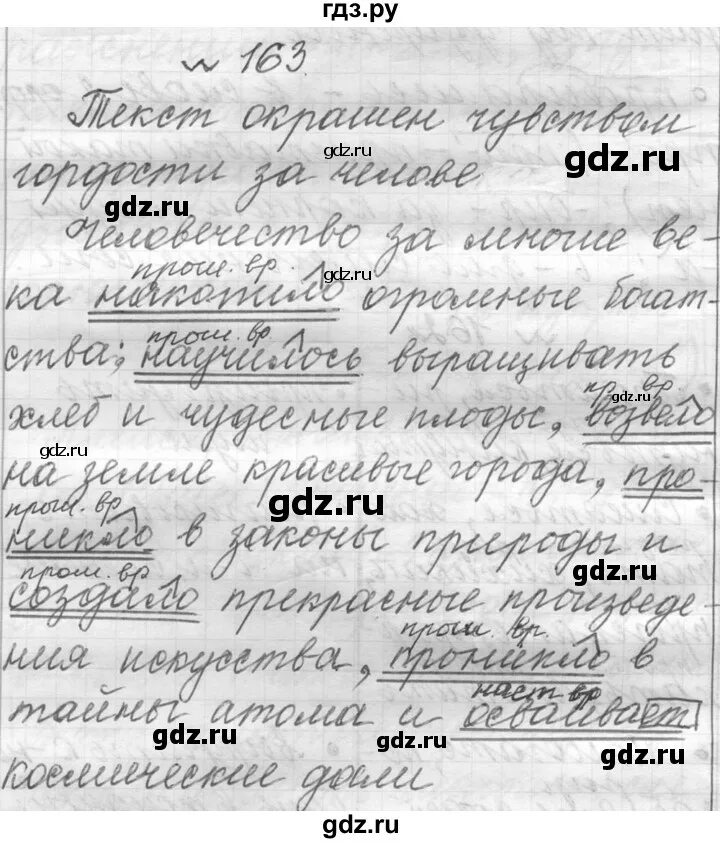 гдз.ру
№ 163
Текст окрашен чувством
gdz.ru gdz.ru
гордости за челове
gdz.ru
Человечество за многие ве-
прош. вр. gdz.ru
ка накопило огромные богат-
прош. вр.
ства; научилось выращивать
пр. вр.
gdz.ru
хлеб и чудесные плоды, возвело
gdz.ru
на земле красивые города, про-
прош. вр. gdz.ru
никло в законы природы и
прош. вр. gdz.ru
создало прекрасные произведе-
прош. вр.
ния искусства, проникло в
наст вр
тайны атома и осваивает
gdz.ru gdz.ru
космические дали
gdz.ru